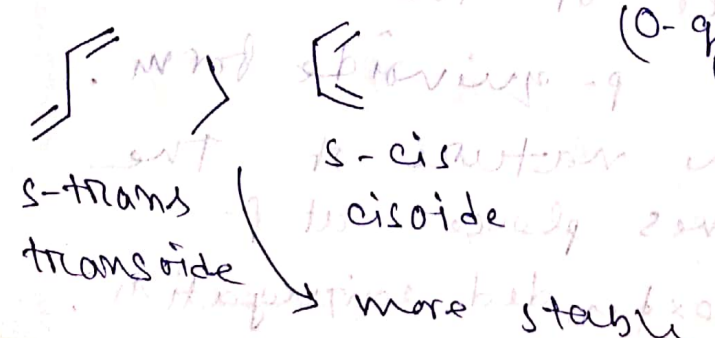 (O-q
>
s-trans
transoide
s-cis
cisoide
more stabl